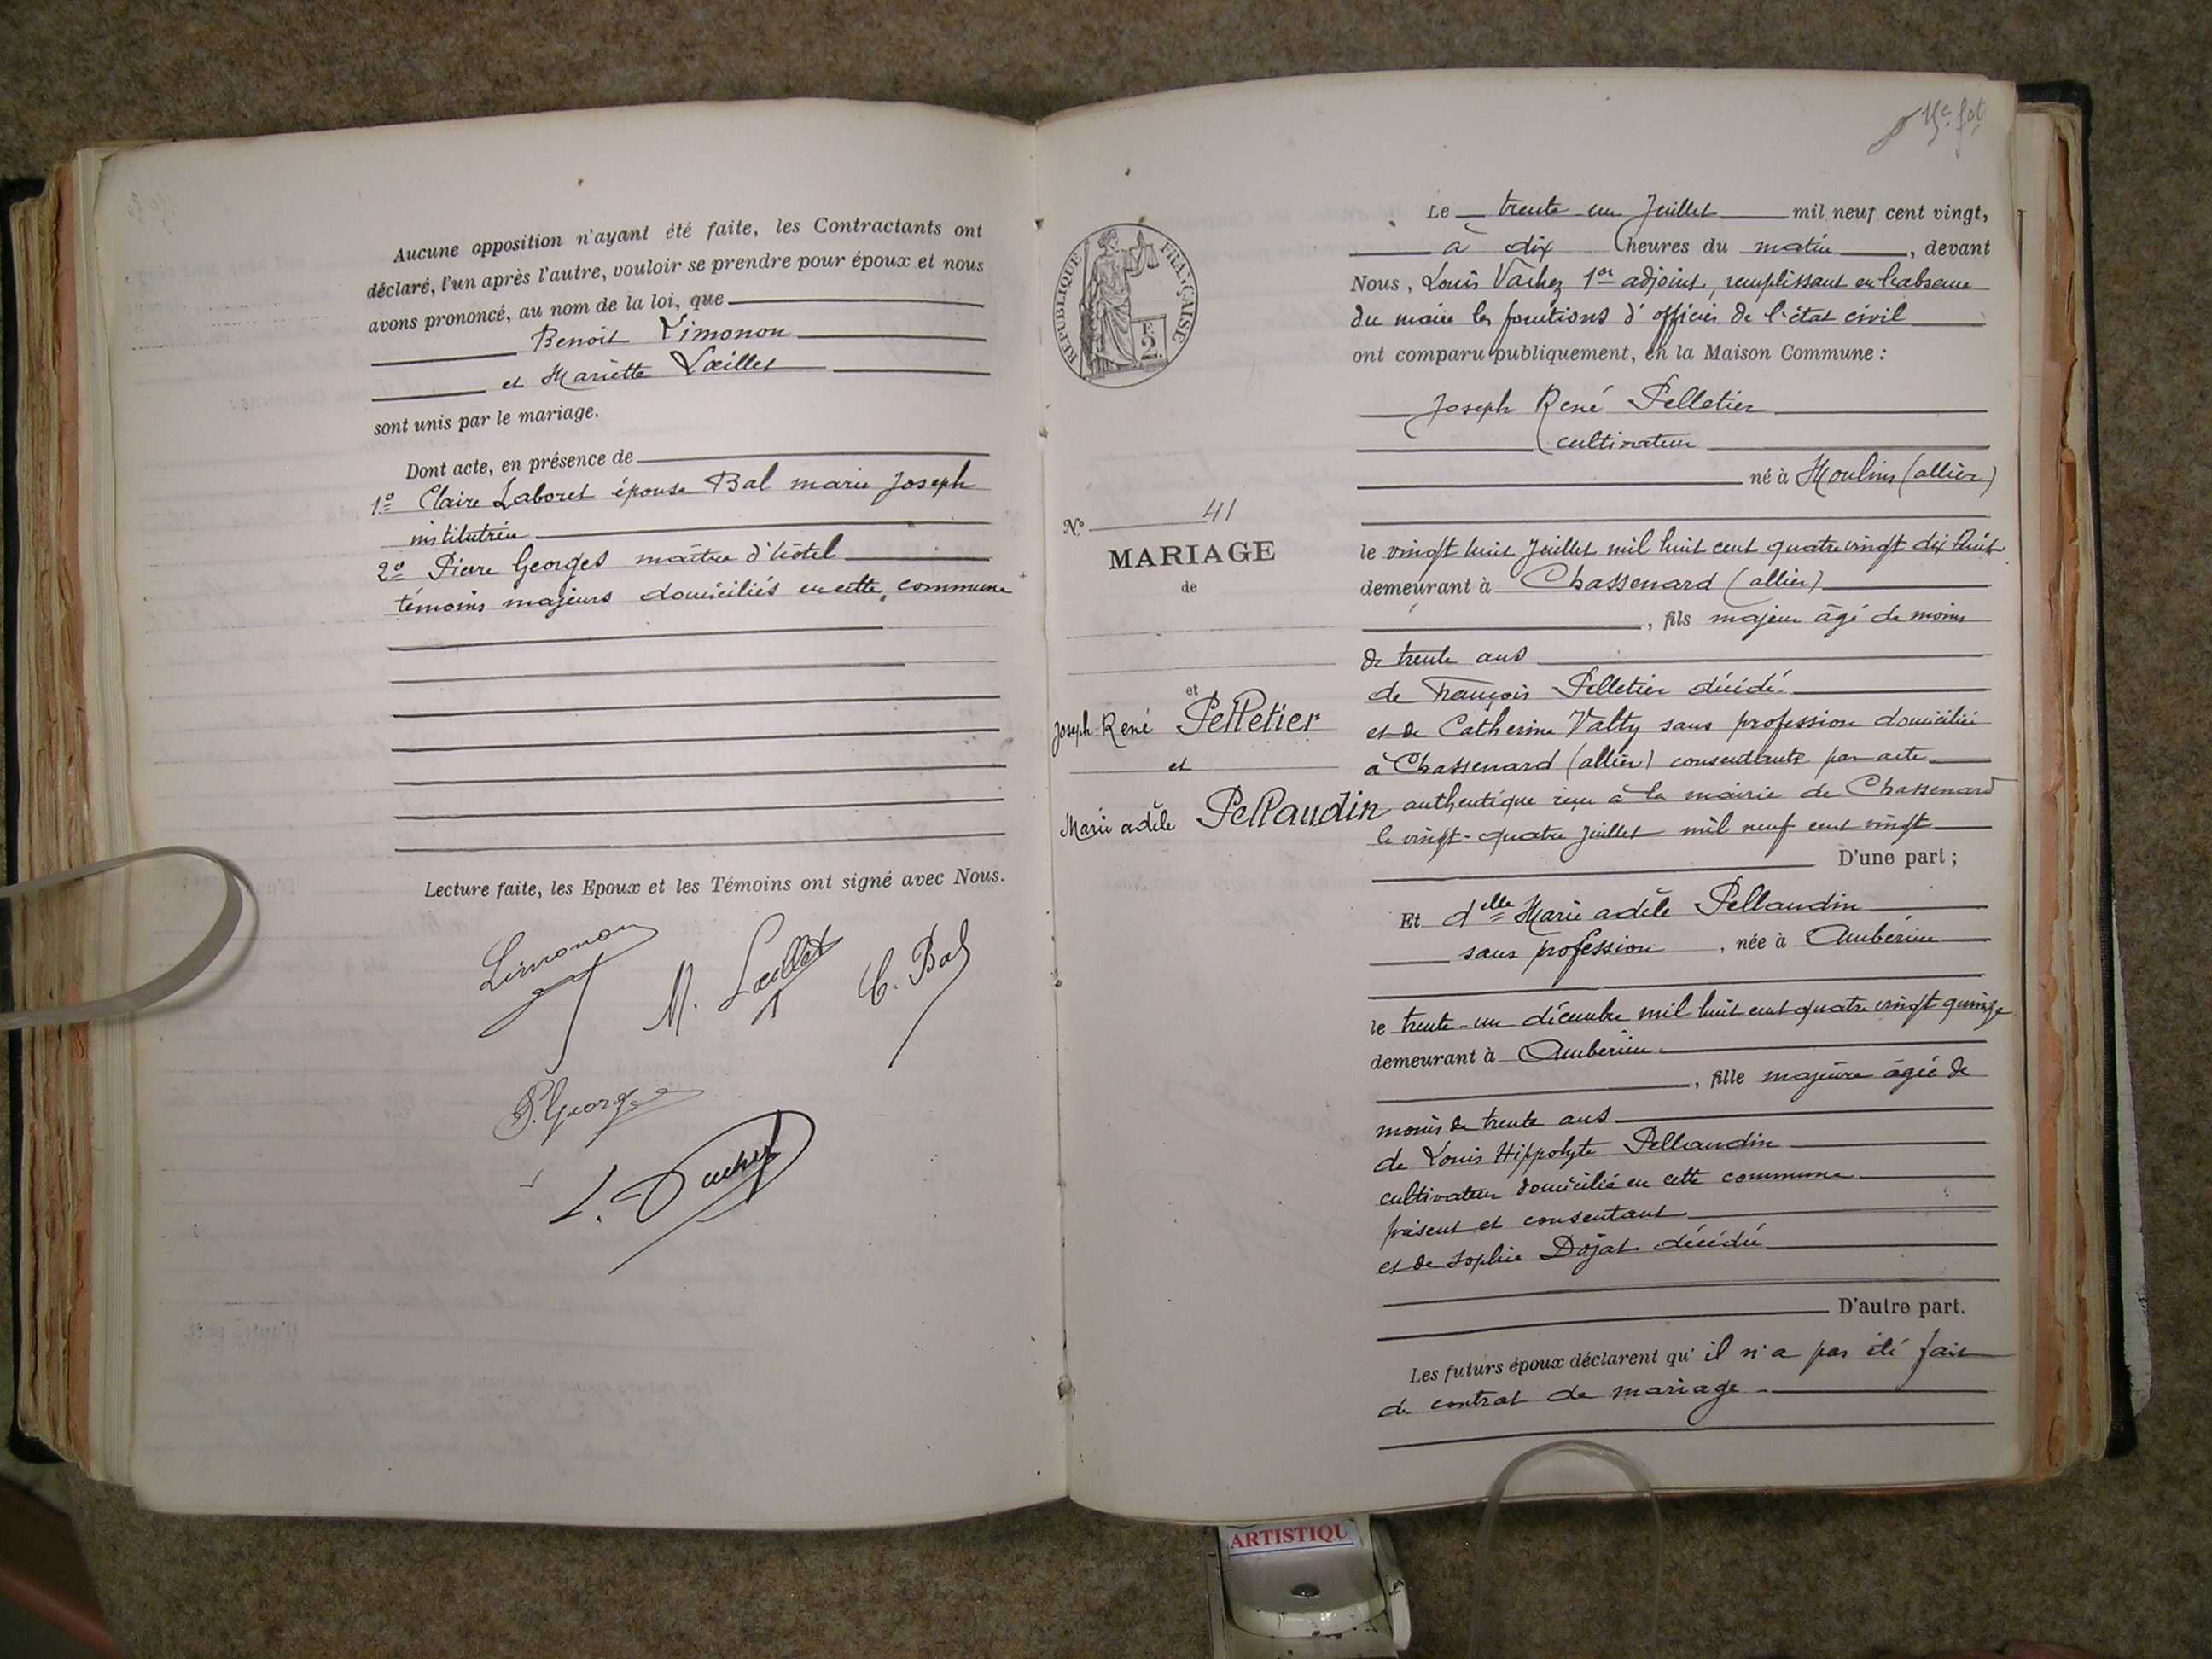 Aucune opposition n'ayant été faite, les Contractants ont
déclaré, l'un après l'autre, vouloir se prendre pour époux et nous
avons prononcé, au nom de la loi, que
Benoit Limonon
et Mariette Lœillet
sont unis par le mariage.
Dont acte, en présence de
1º Claire Laboret épouse Bal marie Joseph
institutrice
2º Pierre Georges maître d'hôtel
témoins majeurs domiciliés en cette commune
Lecture faite, les Epoux et les Témoins ont signé avec Nous.
Limonon
M. Lœillet
C. Bal
P. Georges
L. Vachez
Le trente-un Juillet mil neuf cent vingt,
à dix heures du matin, devant
Nous, Louis Vachez 1er adjoint, remplissant en l'absence
du maire les fonctions d'officier de l'état civil
ont comparu publiquement, en la Maison Commune :
Joseph René Pelletier
cultivateur
né à Moulins (allier)
le vingt huit Juillet mil huit cent quatre vingt dix huit
demeurant à Chassenard (allier)
, fils majeur âgé de moins
de trente ans
de François Pelletier décédé
et de Catherine Valty sans profession domiciliée
à Chassenard (allier) consentante par acte
authentique reçu à la mairie de Chassenard
le vingt-quatre Juillet mil neuf cent vingt
D'une part ;
Et delle Marie adèle Pellaudin
sans profession, née à Ambérieu
le trente-un décembre mil huit cent quatre vingt quinze
demeurant à Ambérieu
, fille majeure âgée de
moins de trente ans
de Louis Hippolyte Pellaudin
cultivateur domicilié en cette commune
présent et consentant
et de Sophie Dojat décédée
D'autre part.
Les futurs époux déclarent qu'il n'a pas été fait
de contrat de mariage
RÉPUBLIQUE FRANÇAISE
F.
2.
Nº 41
MARIAGE
de
et
Joseph René Pelletier
et
Marie adèle Pellaudin
ARTISTIQU